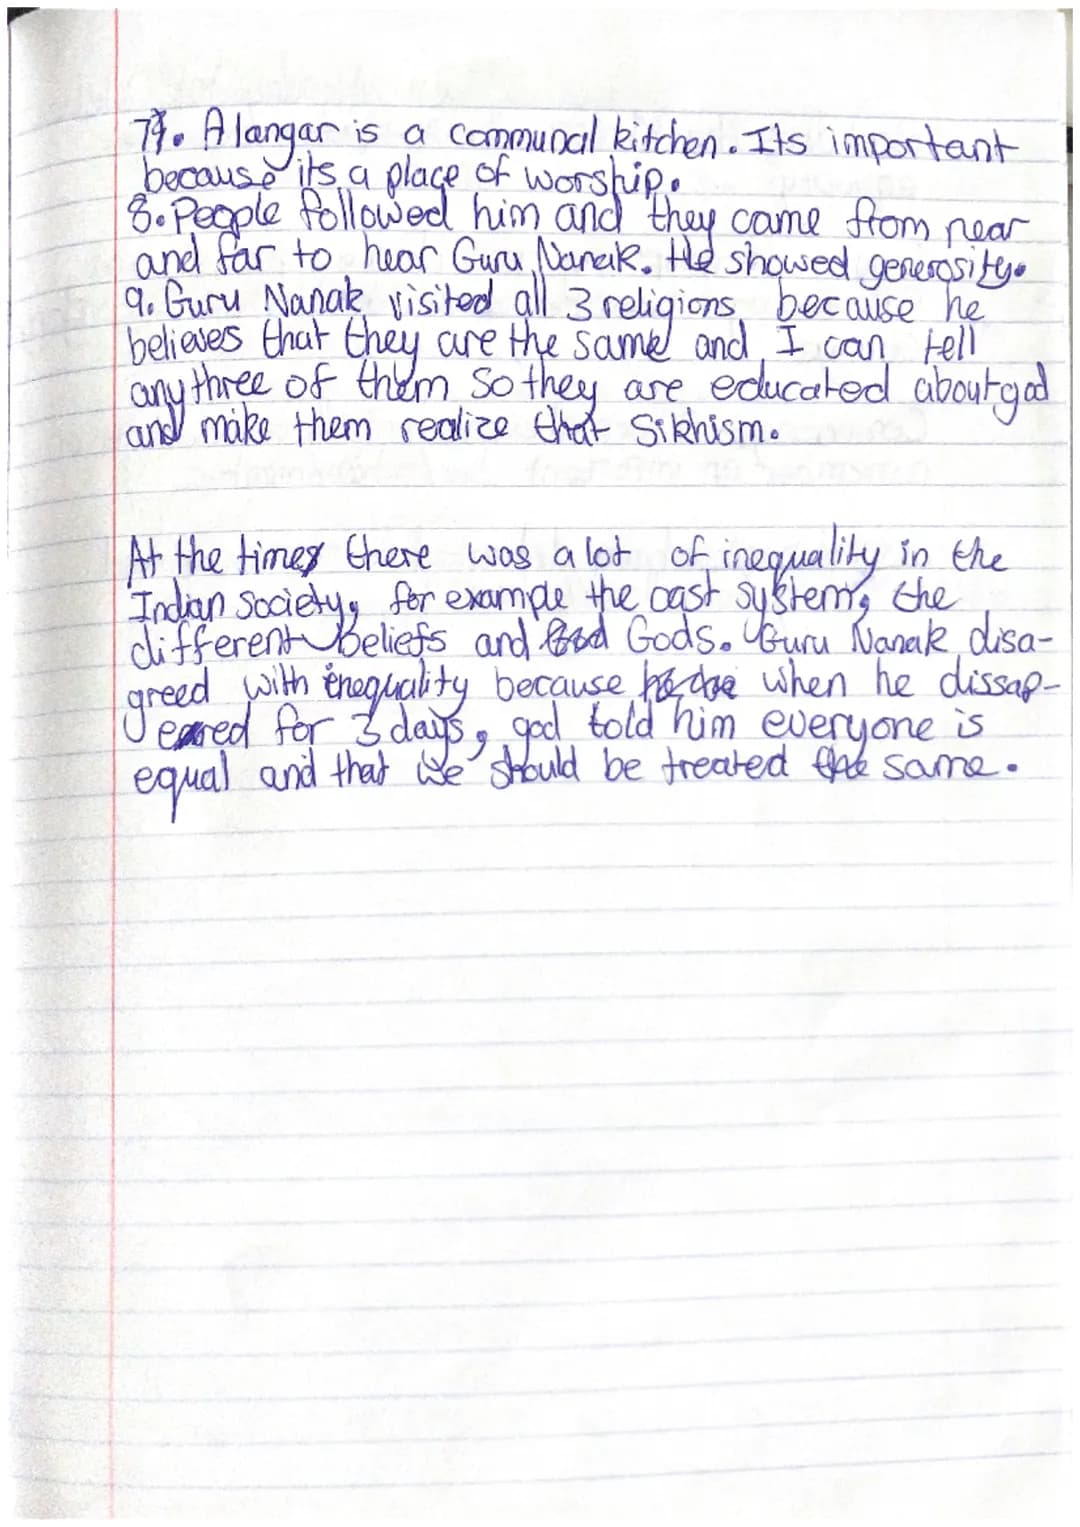 7. A langar is a communal kitchen. Its important
because its a place of worship.
8. People followed him and they came from near
and far to hear Guru Nanak. He showed generosity.
9. Guru Nanak visited all 3 religions because he
believes that they are the same and I can tell
any three of them so they are educated about god
and make them realize that Sikhism.
At the times there was a lot of inequality in the
Indian society, for example the cast system, the
different beliefs and Gods. Guru Nanak disa-
greed with inequality because when he dissap-
eared for 3 days, god told him everyone is
equal and that we should be treated the same.